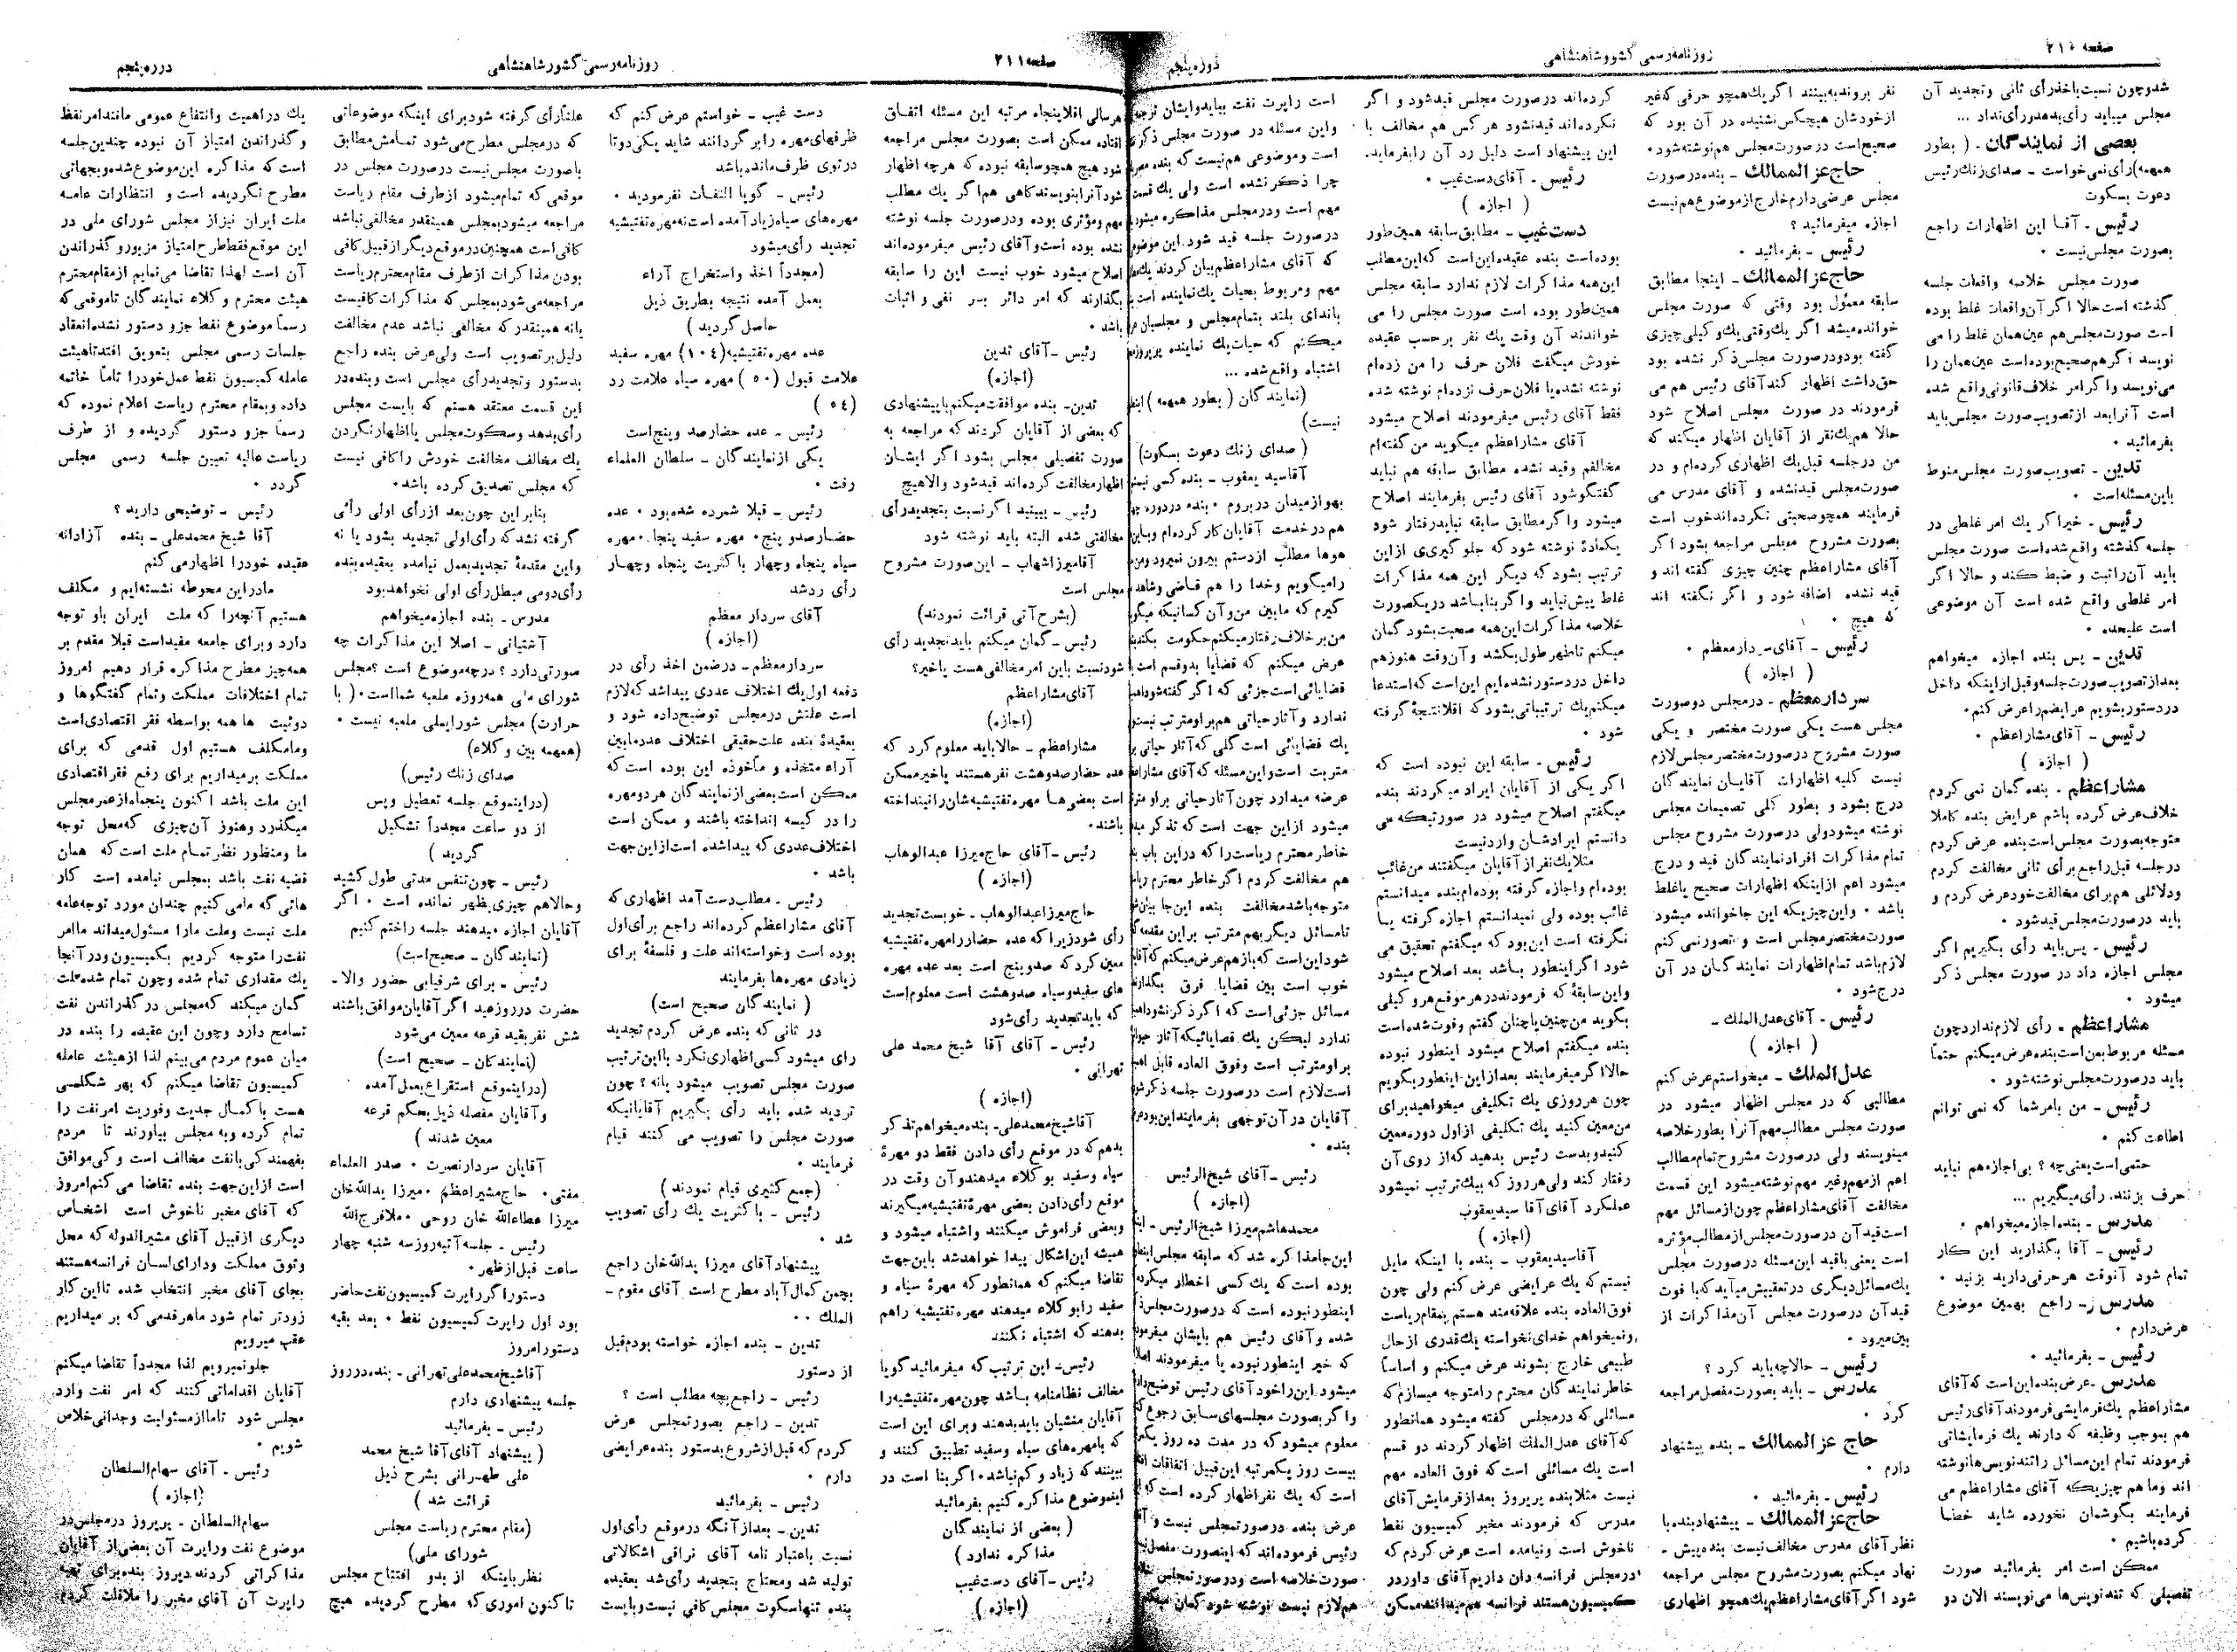 صفحه ۲۱۰
روزنامه رسمی کشور شاهنشاهی
دوره پنجم
شد و چون نسبت باخذ رأی ثانی و تجدید آن
مجلس میباید رأی بدهد رأی نداد ...
بعضی از نمایندگان - ( بطور
همهمه) رأی نمی خواست - صدای زنك رئیس
دعوت بسکوت
رئیس - آقا این اظهارات راجع
بصورت مجلس نیست .
صورت مجلس خلاصه واقعات جلسه
گذشته است حالا اگر آن واقعات غلط بوده
است صورت مجلس هم عین همان غلط را می
نویسد اگر هم صحیح بوده است عین همان را
می نویسد واگر امر خلاف قانونی واقع شده
است آنرا بعد از تصویب صورت مجلس باید
بفرمائید .
تدین - تصویب صورت مجلس منوط
باین مسئله است .
رئیس - خیر اگر یك امر غلطی در
جلسه گذشته واقع شده است صورت مجلس
باید آن را ثبت و ضبط کند و حالا اگر
امر غلطی واقع شده است آن موضوعی
است علیحده .
تدین - پس بنده اجازه میخواهم
بعد از تصویب صورت جلسه وقبل از اینکه داخل
در دستور بشویم عرایضم را عرض کنم.
رئیس - آقای مشار اعظم .
( اجازه )
مشار اعظم - بنده گمان نمی کردم
خلاف عرض کرده باشم عرایض بنده کاملا
متوجه بصورت مجلس است بنده عرض کردم
در جلسه قبل راجع برأی ثانی مخالفت کردم
ودلائلی هم برای مخالفت خود عرض کردم و
باید در صورت مجلس قید شود .
رئیس - پس باید رأی بگیریم اگر
مجلس اجازه داد در صورت مجلس ذکر
میشود .
مشار اعظم - رأی لازم ندارد چون
مسئله مربوط بمن است بنده عرض میکنم حتماً
باید در صورت مجلس نوشته شود .
رئیس - من بامر شما که نمی توانم
اطاعت کنم .
حتمی است یعنی چه ؟ بی اجازه هم نباید
حرف بزنند. رأی میگیریم ...
مدرس - بنده اجازه میخواهم .
رئیس - آقا بگذارید این کار
تمام شود آنوقت هر حرفی دارید بزنید .
مدرس - راجع بهمین موضوع
عرض دارم .
رئیس - بفرمائید .
مدرس - عرض بنده این است که آقای
مشار اعظم یك فرمایشی فرمودند آقای رئیس
هم بموجب وظیفه که دارند یك فرمایشاتی
فرمودند تمام این مسائل را تند نویس ها نوشته
اند وما هم چیزیکه آقای مشار اعظم می
فرمایند بگوشمان نخورده شاید خطا
کرده باشیم .
ممکن است امر بفرمائید صورت
تفصیلی که تند نویس ها می نویسند الان دو
نفر بروند به بینند اگر یك همچو حرفی که غیر
از خودشان هیچکس نشنیده در آن بود که
صحیح است در صورت مجلس هم نوشته شود .
حاج عز الممالك - بنده در صورت
مجلس عرضی دارم خارج از موضوع هم نیست
اجازه میفرمائید ؟
رئیس - بفرمائید .
حاج عز الممالك - اینجا مطابق
سابقه معمول بود وقتی که صورت مجلس
خوانده میشد اگر یك وقتی یك وکیلی چیزی
گفته بود ودر صورت مجلس ذکر نشده بود
حق داشت اظهار کند آقای رئیس هم می
فرمودند در صورت مجلس اصلاح شود
حالا هم یك نفر از آقایان اظهار میکند که
من در جلسه قبل یك اظهاری کرده ام و در
صورت مجلس قید نشده و آقای مدرس می
فرمایند همچو صحبتی نکرده اند خوب است
بصورت مشروح مجلس مراجعه بشود اگر
آقای مشار اعظم چنین چیزی گفته اند و
قید نشده اضافه شود و اگر نگفته اند
که هیچ .
رئیس - آقای سردار معظم .
( اجازه )
سردار معظم - در مجلس دو صورت
مجلس هست یکی صورت مختصر و یکی
صورت مشروح در صورت مختصر مجلس لازم
نیست کلیه اظهارات آقایان نمایندگان
درج بشود و بطور کلی تصمیمات مجلس
نوشته میشود ولی در صورت مشروح مجلس
تمام مذاکرات افراد نمایندگان قید و درج
میشود اعم از اینکه اظهارات صحیح یا غلط
باشد . واین چیزیکه این جا خوانده میشود
صورت مختصر مجلس است و تصور نمی کنم
لازم باشد تمام اظهارات نمایندگان در آن
درج شود .
رئیس - آقای عدل الملك -
( اجازه )
عدل الملك - میخواستم عرض کنم
مطالبی که در مجلس اظهار میشود در
صورت مجلس مطالب مهم آنرا بطور خلاصه
مینویسند ولی در صورت مشروح تمام مطالب
اعم از مهم وغیر مهم نوشته میشود این قسمت
مخالفت آقای مشار اعظم چون از مسائل مهم
است قید آن در صورت مجلس از مطالب مؤثره
است یعنی با قید این مسئله در صورت مجلس
یك مسائل دیگری در تعقیبش میآید که با فوت
قید آن در صورت مجلس آن مذاکرات از
بین میرود .
رئیس - حالا چه باید کرد ؟
مدرس - باید بصورت مفصل مراجعه
کرد .
حاج عز الممالك - بنده پیشنهاد
دارم .
رئیس - بفرمائید .
حاج عز الممالك - پیشنهاد بنده با
نظر آقای مدرس مخالف نیست بنده پیش -
نهاد میکنم بصورت مشروح مجلس مراجعه
شود اگر آقای مشار اعظم یك همچو اظهاری
کرده اند در صورت مجلس قید شود و اگر
نکرده اند قید نشود هر کس هم مخالف با
این پیشنهاد است دلیل رد آن را بفرماید.
رئیس - آقای دست غیب .
( اجازه )
دست غیب - مطابق سابقه همین طور
بوده است بنده عقیده این است که این مطلب
این همه مذاکرات لازم ندارد سابقه مجلس
همین طور بوده است صورت مجلس را می
خواندند آن وقت یك نفر بر حسب عقیده
خودش میگفت فلان حرف را من زده ام
نوشته نشده یا فلان حرف نزده ام نوشته شده
فقط آقای رئیس میفرمودند اصلاح میشود
آقای مشار اعظم میگوید من گفته ام
مخالفم وقید نشده مطابق سابقه هم نباید
گفتگو شود آقای رئیس بفرمایند اصلاح
میشود واگر مطابق سابقه نباید رفتار شود
یکماده نوشته شود که جلوگیری از این
ترتیب بشود که دیگر این همه مذاکرات
غلط پیش نیاید واگر بنا باشد در یکصورت
خلاصه مذاکرات این همه صحبت بشود گمان
میکنم تا ظهر طول بکشد و آن وقت هنوز هم
داخل در دستور نشده ایم این است که استدعا
میکنم یك ترتیباتی بشود که اقلا نتیجهٔ گرفته
شود .
رئیس - سابقه این نبوده است که
اگر یکی از آقایان ایراد میکردند بنده
میگفتم اصلاح میشود در صورتیکه می
دانستم ایرادشان وارد نیست
مثلا یك نفر از آقایان میگفتند من غائب
بوده ام واجازه گرفته بوده ام بنده میدانستم
غائب بوده ولی نمیدانستم اجازه گرفته یا
نگرفته است این بود که میگفتم تحقیق می
شود اگر اینطور باشد بعد اصلاح میشود
واین سابقهٔ که فرمودند در هر موقع هر وکیلی
بگوید من چنین یا چنان گفتم وفوت شده است
بنده میگفتم اصلاح میشود اینطور نبوده
حالا اگر میفرمایند بعد از این اینطور بگویم
چون هر روزی یك تکلیفی میخواهید برای
من معین کنید یك تکلیفی از اول دوره معین
کنید و بدست رئیس بدهید که از روی آن
رفتار کند ولی هر روز که بیك ترتیب نمیشود
عملکرد آقای آقا سید یعقوب
(اجازه )
آقا سید یعقوب - بنده با اینکه مایل
نیستم که یك عرایضی عرض کنم ولی چون
فوق العاده بنده علاقه مند هستم بمقام ریاست
ونمیخواهم خدای نخواسته یك قدری از حال
طبیعی خارج بشوند عرض میکنم و اساساً
خاطر نمایندگان محترم را متوجه میسازم که
مسائلی که در مجلس گفته میشود همانطور
که آقای عدل الملك اظهار کردند دو قسم
است یك مسائلی است که فوق العاده مهم
نیست مثلا بنده پریروز بعد از فرمایش آقای
مدرس که فرمودند مخبر کمیسیون نفط
ناخوش است ونیامده است عرض کردم که
در مجلس فرانسه دان داریم آقای داور در
کمیسیون هستند فرانسه هم میدانند ممکن
است راپرت نفت بیاید وایشان ترجمه
واین مسئله در صورت مجلس ذکر
است وموضوعی هم نیست که بنده
چرا ذکر نشده است ولی یك قسمت
مهم است ودر مجلس مذاکره میشود
در صورت جلسه قید شود. این موضوع
که آقای مشار اعظم بیان کردند یك
مهم ومربوط بحیات یك نماینده است
باندای بلند بتمام مجلس و مجلسیان
میکنم که حیات یك نماینده پریروز
اشتباه واقع شده ...
(نمایندگان ( بطور همهمه )
نیست)
( صدای زنك دعوت بسکوت)
آقا سید یعقوب - بنده کسی نیستم
بهو از میدان در بروم . بنده در دوره
هم در خدمت آقایان کار کرده ام و باین
هوها مطلب از دستم بیرون نمیرود ومن
را میگویم وخدا را هم قاضی وشاهد
گیرم که مابین من و آن کسانیکه
من بر خلاف رفتار میکنم حکومت بکند
عرض میکنم که قضایا بدو قسم است
قضایائی است جزئی که اگر گفته شود اهمیتی
ندارد و آثار حیاتی هم براو مترتب نیست
یك قضایائی است کلی که آثار حیاتی
مترتب است واین مسئله که آقای مشار اعظم
عرضه میدارد چون آثار حیاتی براو
میشود از این جهت است که تذکر
خاطر محترم ریاست را که در این باب
هم مخالفت کردم اگر خاطر محترم
متوجه باشد مخالفت بنده این جا
تا مسائل دیگر بهم مترتب بر این مقدمه
شود این است که باز هم عرض میکنم که آقایان
خوب است بین قضایا. فرق بگذارند
مسائل جزئی است که اگر ذکر نشود
ندارد لیکن یك قضایائیکه آثار
براو مترتب است وفوق العاده قابل
است لازم است در صورت جلسه ذکر شود
آقایان در آن توجهی بفرمایند این بود عرض
بنده .
رئیس - آقای شیخ الرئیس
(اجازه )
محمد هاشم میرزا شیخ الرئیس -
این جا مذاکره شد که سابقه مجلس
بوده است که یك کسی اخطار میکرده
اینطور نبوده است که در صورت مجلس
شده و آقای رئیس هم بایشان میفرمودند
که خیر اینطور نبوده یا میفرمودند
میشود. این را خود آقای رئیس توضیح
واگر بصورت مجلسهای سابق رجوع
معلوم میشود که در مدت ده روز
بیست روز یکمرتبه این قبیل اتفاقات
است که یك نفر اظهار کرده است که
عرض بنده در صورت مجلس نیست و
رئیس فرموده اند که اینصورت مفصل
صورت خلاصه است ودر صورت مجلس
هم لازم نیست نوشته شود گمان میکنم
صفحه ۲۱۱
روزنامه رسمی کشور شاهنشاهی
دوره پنجم
هر سالی اقلا پنجاه مرتبه این مسئله اتفاق
افتاده ممکن است بصورت مجلس مراجعه
شود هیچ همچو سابقه نبوده که هر چه اظهار
شود آنرا بنویسند کاهی هم اگر یك مطلب
مهم ومؤثری بوده ودر صورت جلسه نوشته
نشده بوده است و آقای رئیس میفرموده اند
اصلاح میشود خوب نیست این را سابقه
بگذارند که امر دائر بر نفی و اثبات
باشد .
رئیس - آقای تدین
(اجازه)
تدین - بنده موافقت میکنم با پیشنهادی
که بعضی از آقایان کردند که مراجعه به
صورت تفصیلی مجلس بشود اگر ایشان
اظهار مخالفت کرده اند قید شود والا هیچ
رئیس - ببینید اگر نسبت بتجدید رأی
مخالفتی شده البته باید نوشته شود
آقا میرزا شهاب - این صورت مشروح
مجلس است
(بشرح آتی قرائت نمودند)
رئیس - گمان میکنم باید تجدید رأی
شود نسبت باین امر مخالفی هست یا خیر؟
آقای مشار اعظم
(اجازه)
مشار اعظم - حالا باید معلوم کرد که
عده حضار صد وهشت نفر هستند یا خیر ممکن
است بعضی ها مهره تفتیشیه شان را نینداخته
باشند.
رئیس - آقای حاج میرزا عبدالوهاب
(اجازه )
حاج میرزا عبدالوهاب - خوبست تجدید
رأی شود زیرا که عده حضار را مهره تفتیشیه
معین کرد که صد وپنج است بعد عده مهره
های سفید و سیاه صد وهشت است معلوم است
که باید تجدید رأی شود
رئیس - آقای آقا شیخ محمد علی
تهرانی .
(اجازه )
آقا شیخ محمد علی - بنده میخواهم تذکر
بدهم که در موقع رأی دادن فقط دو مهرهٔ
سیاه وسفید بوکلاء میدهند و آن وقت در
موقع رأی دادن بعضی مهرهٔ تفتیشیه میگیرند
وبعضی فراموش میکنند واشتباه میشود و
همیشه این اشکال پیدا خواهد شد باین جهت
تقاضا میکنم که همانطور که مهرهٔ سیاه و
سفید را بوکلاء میدهند مهره تفتیشیه را هم
بدهند که اشتباه نکنند
رئیس - این ترتیب که میفرمائید گویا
مخالف نظامنامه باشد چون مهره تفتیشیه را
آقایان منشیان باید بدهند وبرای این است
که با مهره های سیاه وسفید تطبیق کنند و
ببینند که زیاد و کم نباشد . اگر بنا است در
اینموضوع مذاکره کنیم بفرمائید
( بعضی از نمایندگان
مذاکره ندارد )
رئیس - آقای دست غیب
(اجازه )
دست غیب - خواستم عرض کنم که
ظرفهای مهره را بر گردانند شاید یکی دوتا
در توی ظرف مانده باشد
رئیس - گویا التفات نفرمودید .
مهره های سیاه زیاد آمده است نه مهره تفتیشیه
تجدید رأی میشود
(مجدداً اخذ واستخراج آراء
بعمل آمده نتیجه بطریق ذیل
حاصل گردید )
عده مهره تفتیشیه (۱۰۴) مهره سفید
علامت قبول (۵۰ ) مهره سیاه علامت رد
(۵۴ )
رئیس - عده حضار صد وپنج است
یکی از نمایندگان - سلطان العلماء
رفت .
رئیس - قبلا شمرده شده بود . عده
حضار صد و پنج . مهره سفید پنجاه . مهره
سیاه پنجاه وچهار با کثریت پنجاه وچهار
رأی رد شد
آقای سردار معظم
(اجازه )
سردار معظم - در ضمن اخذ رأی در
دفعه اول یك اختلاف عددی پیدا شد که لازم
است علتش در مجلس توضیح داده شود و
بعقیدهٔ بنده علت حقیقی اختلاف عدد مابین
آراء متخذه و مأخوذه این بوده است که
ممکن است بعضی از نمایندگان هر دو مهره
را در کیسه انداخته باشند و ممکن است
اختلاف عددی که پیدا شده است از این جهت
باشد .
رئیس - مطلب دست آمد اظهاری که
آقای مشار اعظم کرده اند راجع برأی اول
بوده است وخواسته اند علت و فلسفهٔ برای
زیادی مهره ها بفرمایند
( نمایندگان صحیح است)
در ثانی که بنده عرض کردم تجدید
رای میشود کسی اظهاری نکرد با این ترتیب
صورت مجلس تصویب میشود یا نه ؟ چون
تردید شده باید رأی بگیریم آقایانیکه
صورت مجلس را تصویب می کنند قیام
فرمایند .
(جمع کثیری قیام نمودند )
رئیس - با کثریت یك رأی تصویب
شد .
پیشنهاد آقای میرزا یدالله خان راجع
بچمن کمال آباد مطرح است آقای مقوم -
الملك . .
تدین - بنده اجازه خواسته بودم قبل
از دستور
رئیس - راجع بچه مطلب است ؟
تدین - راجع بصورتمجلس عرض
کردم که قبل از شروع بدستور بنده عرایضی
دارم .
رئیس - بفرمائید
تدین - بعد از آنکه در موقع رأی اول
نسبت باعتبار نامه آقای نراقی اشکالاتی
تولید شد ومحتاج بتجدید رأی شد بعقیده
بنده تنها سکوت مجلس کافی نیست وبایست
علناً رأی گرفته شود برای اینکه موضوعاتی
که در مجلس مطرح می شود تمامش مطابق
با صورت مجلس نیست در صورت مجلس در
موقعی که تمام میشود از طرف مقام ریاست
مراجعه میشود بمجلس همینقدر مخالفی نباشد
کافی است همچنین در موقع دیگر از قبیل کافی
بودن مذاکرات از طرف مقام محترم ریاست
مراجعه می شود بمجلس که مذاکرات کافیست
یا نه همینقدر که مخالفی نباشد عدم مخالفت
دلیل بر تصویب است ولی عرض بنده راجع
بدستور وتجدید رأی مجلس است وبنده در
این قسمت معتقد هستم که بایست مجلس
رأی بدهد وسکوت مجلس یا اظهار نکردن
یك مخالف مخالفت خودش را کافی نیست
که مجلس تصدیق کرده باشد.
بنابر این چون بعد از رأی اولی رأئی
گرفته نشد که رأی اولی تجدید بشود یا نه
واین مقدمهٔ تجدید بعمل نیامده بعقیده بنده
رأی دومی مبطل رأی اولی نخواهد بود
مدرس - بنده اجازه میخواهم
آشتیانی - اصلا این مذاکرات چه
صورتی دارد ؟ در چه موضوع است ؟ مجلس
شورای ملی همه روزه ملعبه شما است . ( با
حرارت) مجلس شورایملی ملعبه نیست .
(همهمه بین وکلاء)
صدای زنك رئیس)
(در اینموقع جلسه تعطیل وپس
از دو ساعت مجدداً تشکیل
گردید )
رئیس - چون تنفس مدتی طول کشید
وحالا هم چیزی بظهر نمانده است . اگر
آقایان اجازه میدهند جلسه را ختم کنیم
(نمایندگان - صحیح است)
رئیس - برای شرفیابی حضور والا -
حضرت در روز عید اگر آقایان موافق باشند
شش نفر بقید قرعه معین می شود
(نمایندگان - صحیح است )
(در اینموقع استقراع بعمل آمده
و آقایان مفصله ذیل بحکم قرعه
معین شدند )
آقایان سردار نصرت . صدر العلماء
مفتی . حاج مشیر اعظم . میرزا یدالله خان
میرزا عطاءالله خان روحی . ملا فرج الله
رئیس - جلسه آتیه روز سه شنبه چهار
ساعت قبل از ظهر .
دستور اگر راپرت کمیسیون نفت حاضر
بود اول راپرت کمیسیون نفط . بعد بقیه
دستور امروز
آقا شیخ محمد علی تهرانی - بنده در روز
جلسه پیشنهادی دارم
رئیس - بفرمائید
( پیشنهاد آقای آقا شیخ محمد
علی طهرانی بشرح ذیل
قرائت شد )
(مقام محترم ریاست مجلس
شورای ملی)
نظر باینکه از بدو افتتاح مجلس
تا کنون اموری که مطرح گردیده هیچ
یك در اهمیت وانتفاع عمومی مانند امر نفط
و گذراندن امتیاز آن نبوده چندین جلسه
است که مذاکره این موضوع شده وبجهاتی
مطرح نگردیده است و انتظارات عامه
ملت ایران نیز از مجلس شورای ملی در
این موقع فقط طرح امتیاز مزبور و گذراندن
آن است لهذا تقاضا می نمایم از مقام محترم
هیئت محترم و کلاء نمایندگان تا موقعی که
رسماً موضوع نفط جزو دستور نشده انعقاد
جلسات رسمی مجلس بتعویق افتد تا هیئت
عامله کمیسیون نفط عمل خود را تماماً خاتمه
داده وبمقام محترم ریاست اعلام نموده که
رسماً جزو دستور گردیده و از طرف
ریاست عالیه تعیین جلسه رسمی مجلس
گردد .
رئیس - توضیحی دارید ؟
آقا شیخ محمد علی - بنده آزادانه
عقیده خود را اظهار می کنم
ما در این محوطه نشسته ایم و مکلف
هستیم آنچه را که ملت ایران باو توجه
دارد وبرای جامعه مفید است قبلا مقدم بر
همه چیز مطرح مذاکره قرار دهیم امروز
تمام اختلافات مملکت وتمام گفتگوها و
دوئیت ها همه بواسطه فقر اقتصادی است
وما مکلف هستیم اول قدمی که برای
مملکت بر میداریم برای رفع فقر اقتصادی
این ملت باشد اکنون پنجماه از عمر مجلس
میگذرد وهنوز آن چیزی که محل توجه
ما ومنظور نظر تمام ملت است که همان
قضیه نفت باشد بمجلس نیامده است کار
هائی که ما می کنیم چندان مورد توجه عامه
ملت نیست وملت ما را مسئول میداند ما امر
نفت را متوجه کردیم بکمیسیون ودر آنجا
یك مقداری تمام شده وچون تمام شده ملت
گمان میکند که مجلس در گذراندن نفت
تسامح دارد وچون این عقیده را بنده در
میان عموم مردم می بینم لذا از هیئت عامله
کمیسیون تقاضا میکنم که بهر شکلی
هست با کمال جدیت وفوریت امر نفت را
تمام کرده وبه مجلس بیاورند تا مردم
بفهمند کی با نفت مخالف است و کی موافق
است از این جهت بنده تقاضا می کنم امروز
که آقای مخبر ناخوش است اشخاص
دیگری از قبیل آقای مشیر الدوله که محل
وثوق مملکت ودارای لسان فرانسه هستند
بجای آقای مخبر انتخاب شده تا این کار
زودتر تمام شود ما هر قدمی که بر میداریم
عقب میرویم
جلو نمیرویم لذا مجدداً تقاضا میکنم
آقایان اقداماتی کنند که امر نفت وارد
مجلس شود تا ما از مسئولیت وجدانی خلاص
شویم .
رئیس - آقای سهام السلطان
(اجازه )
سهام السلطان - پریروز در مجلس در
موضوع نفت وراپرت آن بعضی از آقایان
مذاکراتی کردند دیروز بنده برای تهیه
راپرت آن آقای مخبر را ملاقات کردم